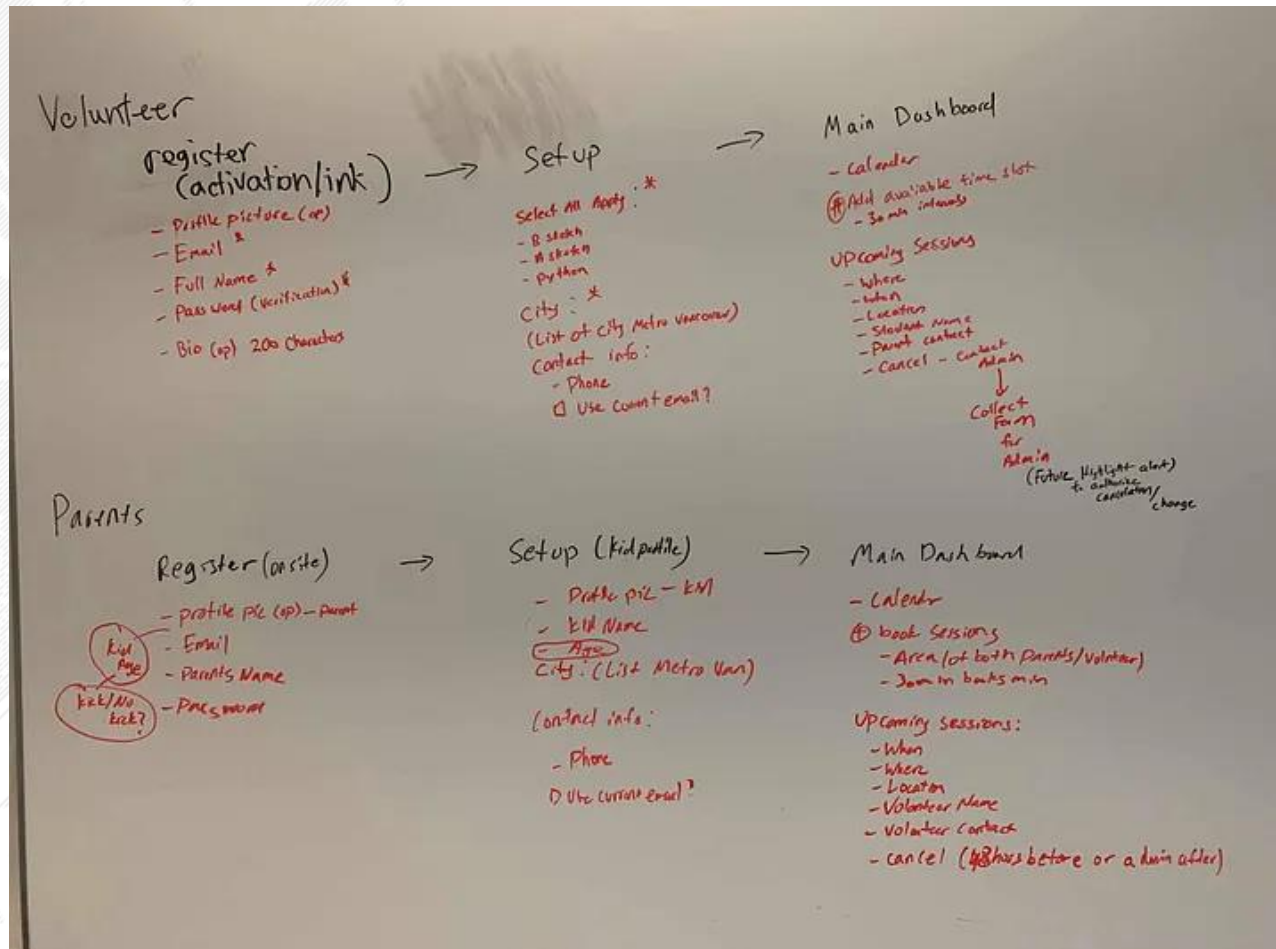 Volunteer
register
(activation/ink)
→
- Profile picture (op)
- Email *
- Full Name *
- Password (verification) *
- Bio (op) 200 Characters
Setup
→
Select All Apply : *
- B sketch
- A sketch
- Python
City : *
(List of City Metro Vancouver)
Contact info :
- Phone
□ Use current email?
Main Dashboard
- Calender
Add available time slot
- 30 min intervals
Upcoming Sessions
- Where
- When
- Location
- Student Name
- Parent contact
- Cancel - Contact
Admin
↓
Collect
Form
for
Admin
(Future Highlight alert)
to authorize
cancelation/
change
Parents
Register (onsite)
→
- profile pic (op) - parent
- Email
- Parents Name
- Password
Kid
Age
No
Setup (kid profile)
→
- Profile pic - kid
- Kid Name
- Age
City : (List Metro Van)
Contact info :
- Phone
□ Use current email?
Main Dashboard
- Calendr
⊕ book sessions
- Area (of both Parents/Volunteer)
- 30min min
Upcoming sessions :
- When
- Where
- Location
- Volunteer Name
- Volunteer Contact
- cancel (48hours before or admin after)